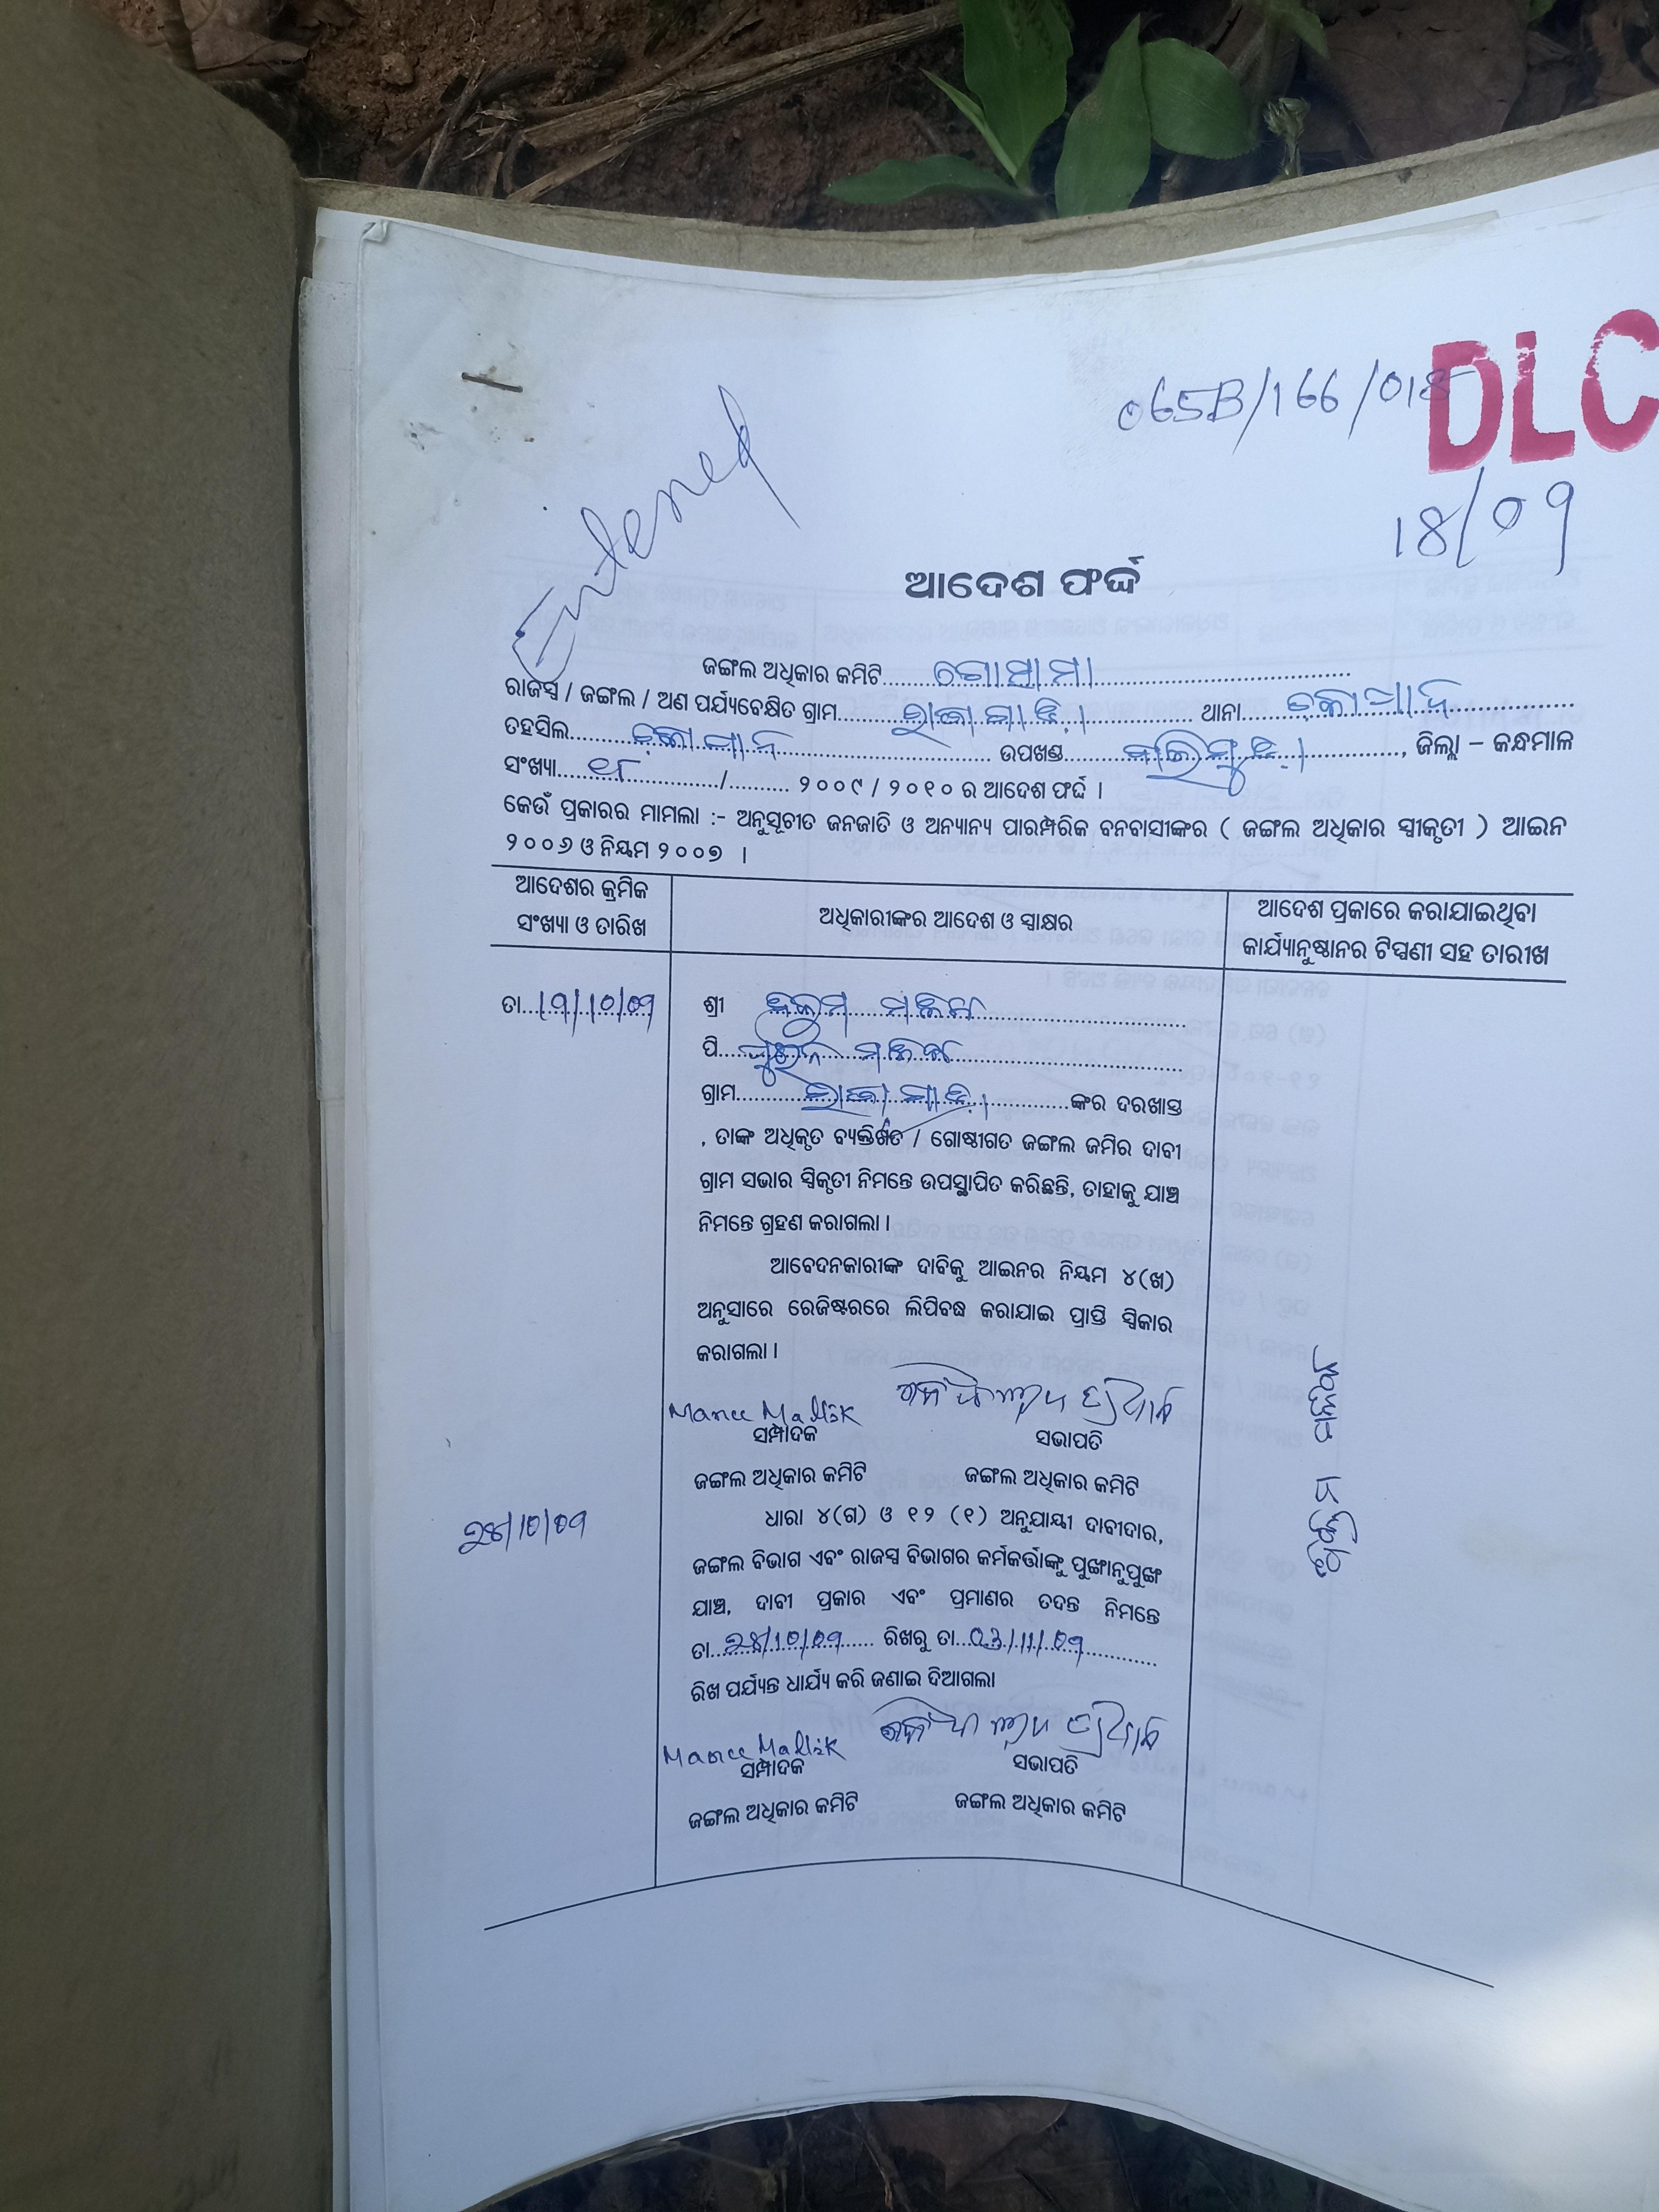 065B/166/018
DLC
Entered
18/09
ଆଦେଶ ଫର୍ଦ୍ଦ
ଜଙ୍ଗଲ ଅଧିକାର କମିଟି..........
ରାଜସ୍ଵ / ଜଙ୍ଗଲ / ଅଣ ପର୍ଯ୍ୟବେକ୍ଷିତ ଗ୍ରାମ.......... ଥାନା..........
ତହସିଲ.......... ଉପଖଣ୍ଡ.........., ଜିଲ୍ଲା – କନ୍ଧମାଳ
ସଂଖ୍ୟା....../...... ୨୦୦୯ / ୨୦୧୦ ର ଆଦେଶ ଫର୍ଦ୍ଦ ।
କେଉଁ ପ୍ରକାରର ମାମଲା :- ଅନୁସୂଚୀତ ଜନଜାତି ଓ ଅନ୍ୟାନ୍ୟ ପାରମ୍ପରିକ ବନବାସୀଙ୍କର ( ଜଙ୍ଗଲ ଅଧିକାର ସ୍ଵୀକୃତୀ ) ଆଇନ
୨୦୦୬ ଓ ନିୟମ ୨୦୦୭ ।
ଆଦେଶର କ୍ରମିକ
ସଂଖ୍ୟା ଓ ତାରିଖ
ଅଧିକାରୀଙ୍କର ଆଦେଶ ଓ ସ୍ଵାକ୍ଷର
ଆଦେଶ ପ୍ରକାରେ କରାଯାଇଥିବା
କାର୍ଯ୍ୟାନୁଷ୍ଠାନର ଟିପ୍ପଣୀ ସହ ତାରୀଖ
ତା...19/10/09
ଶ୍ରୀ .......... ମଲ୍ଲିକ
ପି.......... ମଲ୍ଲିକ
ଗ୍ରାମ..........ଙ୍କର ଦରଖାସ୍ତ
, ତାଙ୍କ ଅଧିକୃତ ବ୍ୟକ୍ତିଗତ / ଗୋଷ୍ଠୀଗତ ଜଙ୍ଗଲ ଜମିର ଦାବୀ
ଗ୍ରାମ ସଭାର ସ୍ଵିକୃତୀ ନିମନ୍ତେ ଉପସ୍ଥାପିତ କରିଛନ୍ତି, ତାହାକୁ ଯାଞ୍ଚ
ନିମନ୍ତେ ଗ୍ରହଣ କରାଗଲା ।
ଆବେଦନକାରୀଙ୍କ ଦାବିକୁ ଆଇନର ନିୟମ ୪(ଖ)
ଅନୁସାରେ ରେଜିଷ୍ଟରରେ ଲିପିବଦ୍ଧ କରାଯାଇ ପ୍ରାପ୍ତି ସ୍ଵିକାର
କରାଗଲା ।
Mallik
ପ୍ରଧାନ
ସମ୍ପାଦକ ସଭାପତି
ଜଙ୍ଗଲ ଅଧିକାର କମିଟି ଜଙ୍ଗଲ ଅଧିକାର କମିଟି
ଧାରା ୪(ଗ) ଓ ୧୨ (୧) ଅନୁଯାୟୀ ଦାବୀଦାର,
ଜଙ୍ଗଲ ବିଭାଗ ଏବଂ ରାଜସ୍ଵ ବିଭାଗର କର୍ମକର୍ତ୍ତାଙ୍କୁ ପୁଙ୍ଖାନୁପୁଙ୍ଖ
ଯାଞ୍ଚ, ଦାବୀ ପ୍ରକାର ଏବଂ ପ୍ରମାଣର ତଦନ୍ତ ନିମନ୍ତେ
ତା.......... ରିଖରୁ ତା...03/11/09..........
ରିଖ ପର୍ଯ୍ୟନ୍ତ ଧାର୍ଯ୍ୟ କରି ଜଣାଇ ଦିଆଗଲା
Mallik
ପ୍ରଧାନ
ସମ୍ପାଦକ ସଭାପତି
ଜଙ୍ଗଲ ଅଧିକାର କମିଟି ଜଙ୍ଗଲ ଅଧିକାର କମିଟି